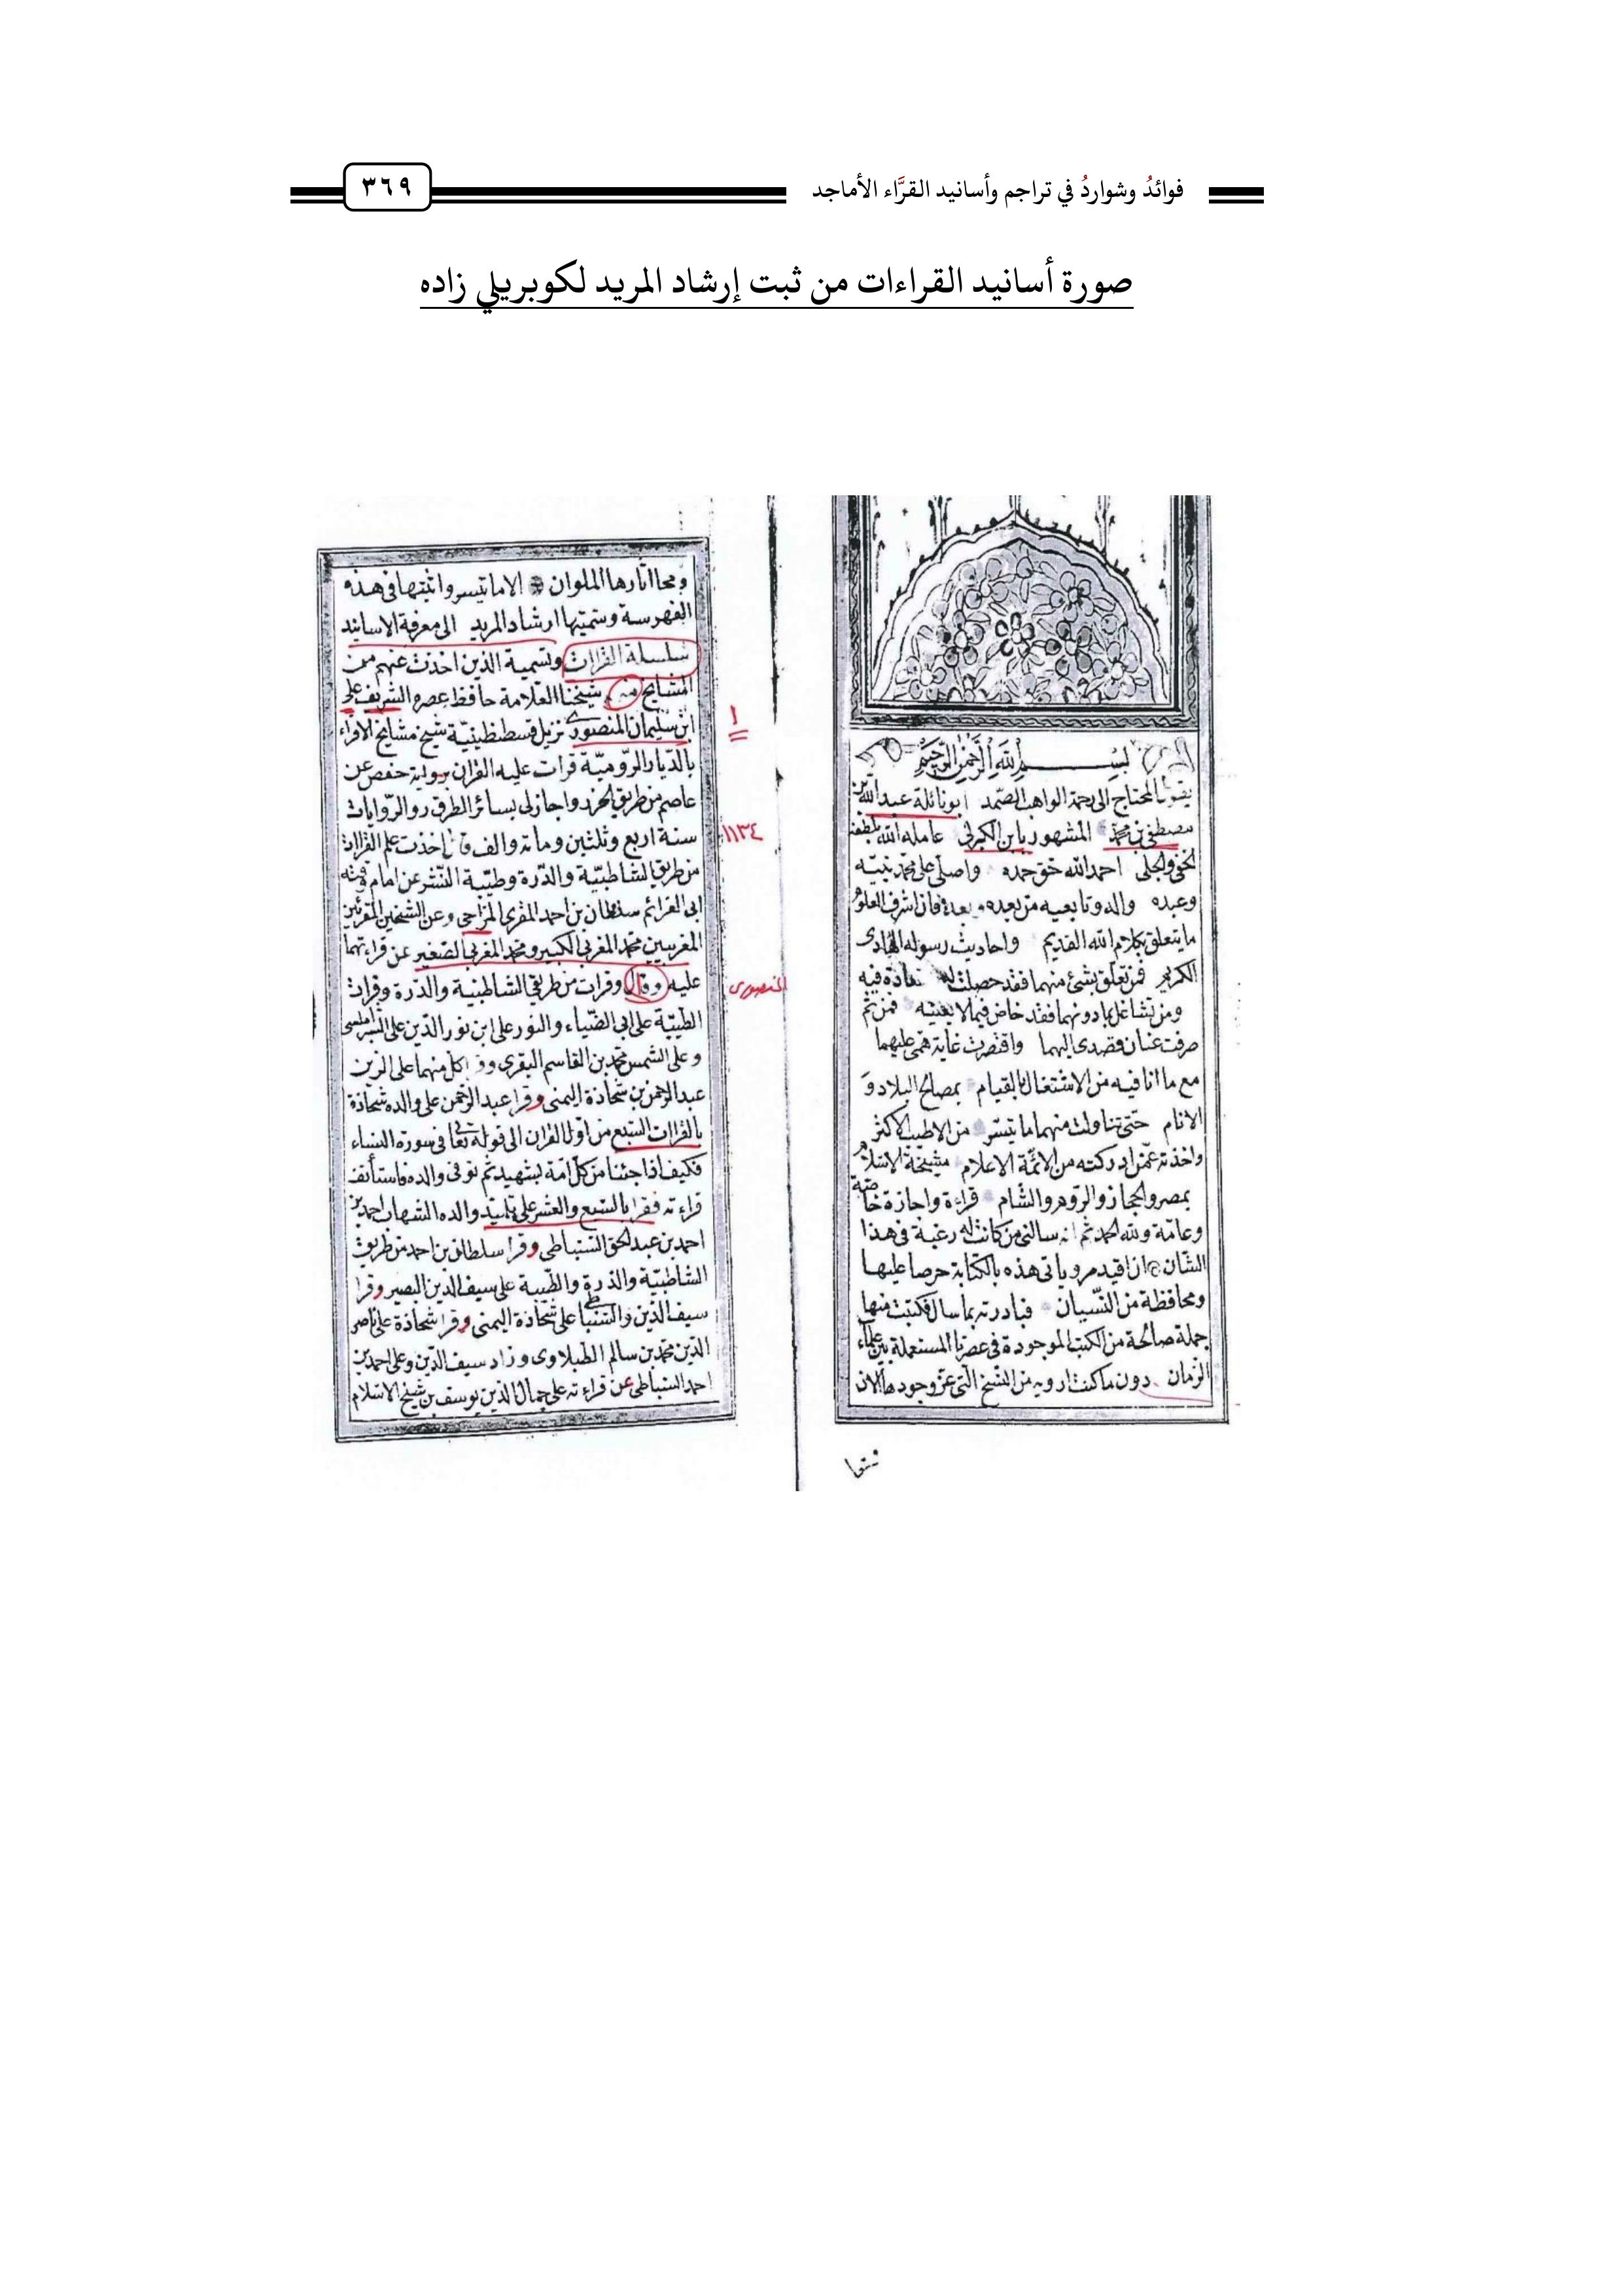 فوائدُ وشواردُ في تراجم وأسانيد القرَّاء الأماجد
٣٦٩
صورة أسانيد القراءات من ثبت إرشاد المريد لكوبريلي زاده
بسم الله الرحمن الرحيم
يقول المحتاج الى رحمة الواهب الصمد ابو نائلة عبد الله بن
مصطفى بن محمد المشهور بابن الكبرلى عامله الله بلطفه
الخفى والجلى احمد الله حق حمده واصلى على محمد نبيه
وعبده واله وتابعيه من بعده وبعد فان اشرف العلوم
ما يتعلق بكلام الله القديم واحاديث رسوله الهادى
الكريم فمن تعلق بشئ منهما فقد حصلت له فيه
ومن تشاغل بما دونهما فقد خاض فيما لا يعنيه فمن ثم
صرفت عنان قصدى اليهما واقتصرت غاية همى عليهما
مع ما انا فيه من الاشتغال بالقيام بمصالح البلاد و
الانام حتى تناولت منهما ما تيسر من الاطيب الاكثر
واخذته عمن ادركته من الائمة الاعلام مشيخة الاسلام
بمصر والحجاز والروم والشام قراءة واجازة خاصة
وعامة ولله الحمد ثم انه سالنى من كانت له رغبة فى هذا
الشان ان اقيد مروياتى هذه بالكتابة حرصا عليها
ومحافظة من النسيان فبادرته بما سال فكتبت منها
جملة صالحة من الكتب الموجودة فى عصرنا المستعملة بين علماء
الزمان دون ما كنت ارويه من النسخ التى عز وجودها الان
ومحا اثارها الملوان الا ما تيسر واثبتها فى هذه
الفهرسة وسميتها ارشاد المريد الى معرفة الاسانيد
سلسلة القراات وتسمية الذين اخذت عنهم من
المشايخ منهم شيخنا العلامة حافظ عصره الشريف على
١
ابن سليمان المنصورى نزيل قسطنطينية شيخ مشايخ الاقراء
بالديار الرومية قرات عليه القران برواية حفص عن
عاصم من طريق الحرز واجاز لى بسائر الطرق والروايات
سنة اربع وثلثين ومائة والف قال اخذت علم القراات
١١٣٤
من طريق الشاطبية والدرة وطيبة النشر عن امام وقته
ابى العزائم سلطان بن احمد المقرى المزاحى وعن الشيخين المقرئين
المغربيين محمد المغربى الكبير ومحمد المغربى الصغير عن قراءتهما
عليه وقال وقرات من طريقى الشاطبية والدرة وقرات
المنصورى
الطيبة على ابى الضياء والنور على ابن نور الدين على الشبراملسى
وعلى الشمس محمد بن القاسم البقرى وقرا كل منهما على الزين
عبد الرحمن بن شحاذة اليمنى وقرا عبد الرحمن على والده شحاذة
بالقراات السبع من اول القران الى قوله تعالى فى سورة النساء
فكيف اذا جئنا من كل امة بشهيد ثم توفى والده فاستأنف
قراءته فقرا بالسبع والعشر على تلميذ والده الشهاب احمد بن
احمد بن عبد الحق السنباطى وقرا سلطان بن احمد من طريق
الشاطبية والدرة والطيبة على سيف الدين البصير وقرا
سيف الدين والسنباطى على شحاذة اليمنى وقرا شحاذة على ناصر
الدين محمد بن سالم الطبلاوى وزاد سيف الدين وعلى احمد بن
احمد السنباطى عن قراءته على جمال الدين يوسف بن شيخ الاسلام